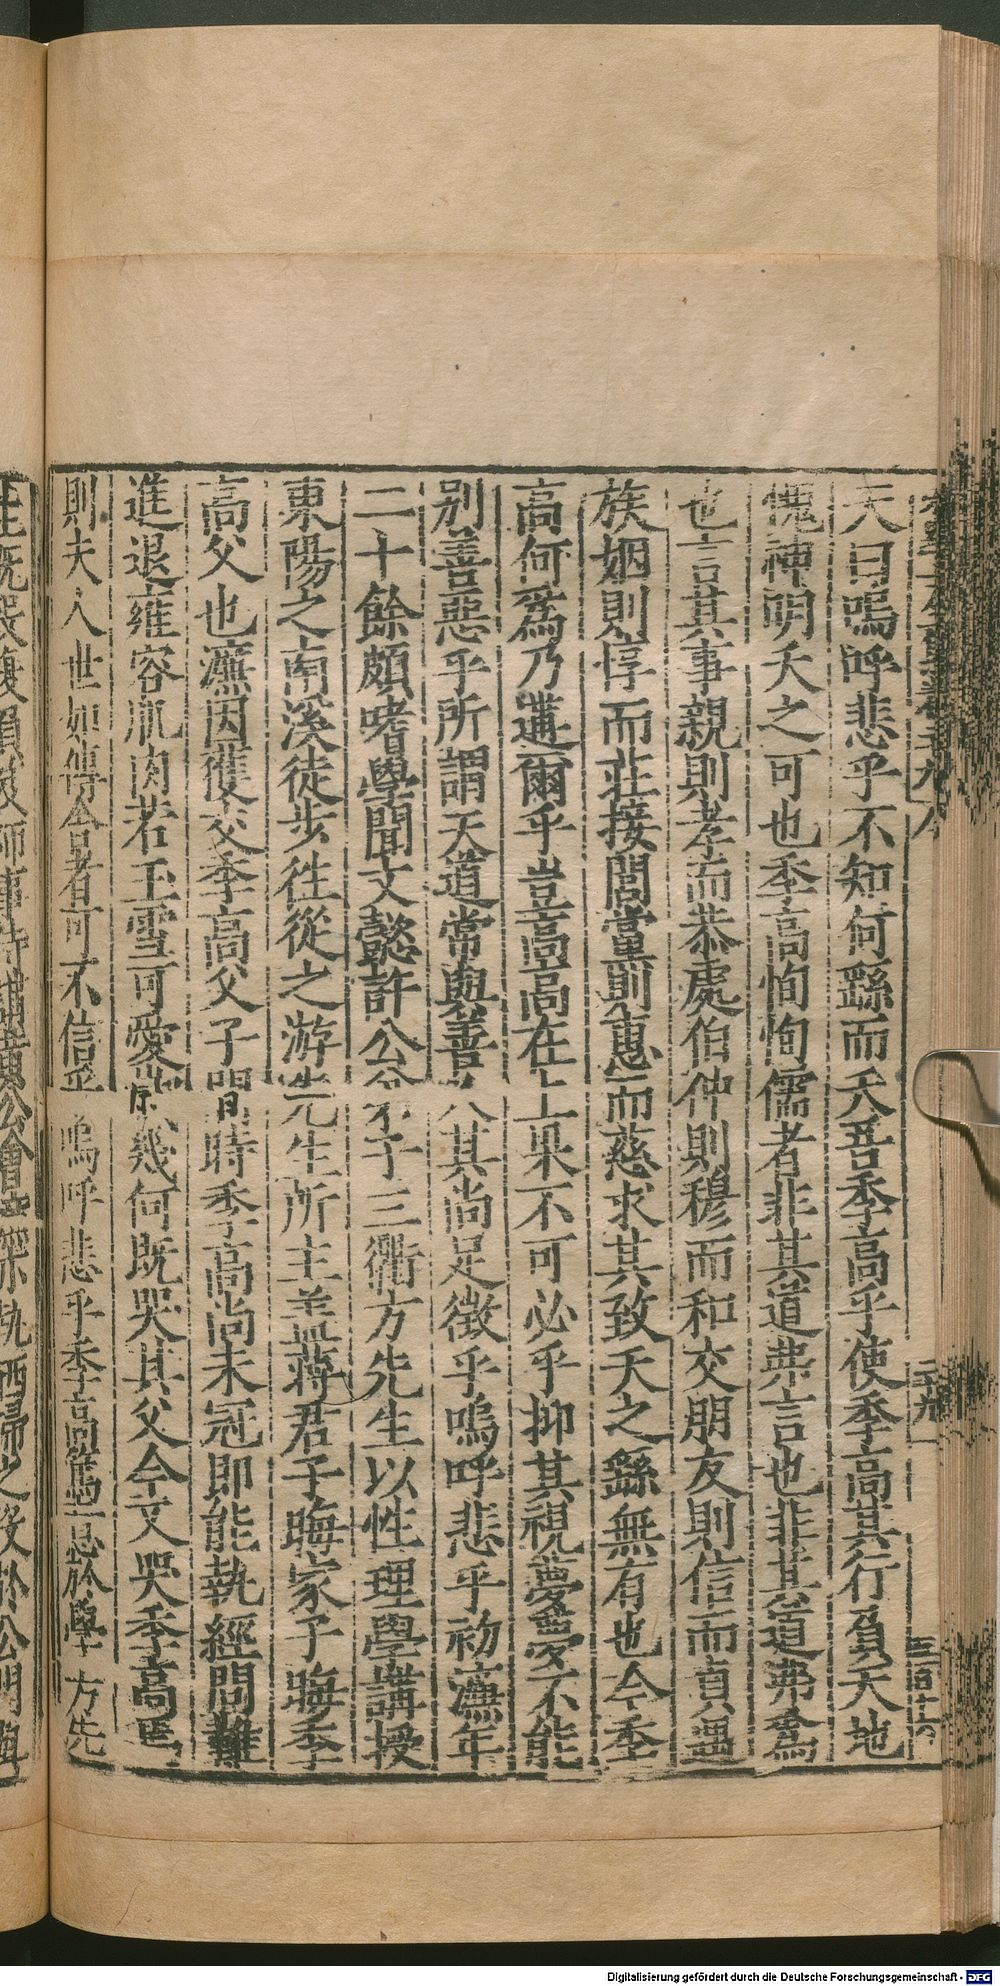 天曰嗚呼悲乎不知何繇而夭吾季高乎使季高其行負天地
愧神明夭之可也季高恂恂儒者非其道弗言也非其道弗為
也言其事親則孝而恭處伯仲則穆而和交朋友則信而貞遇
族姻則惇而莊接閭黨則惠而慈求其致夭之繇無有也今季
高何為乃遘爾乎豈高高在上果不可必乎抑其視夢夢不能
別善惡乎所謂天道常與善人其尚足徵乎嗚呼悲乎初濂年
二十餘頗嗜學聞文懿許公弟子三衢方先生以性理學講授
東陽之南溪徒步往從之游先生所主蓋蔣君子晦家子晦季
高父也濂因獲交季高父子間時季高尚未冠即能執經問難
進退雍容肌肉若玉雪可愛幾何既哭其父今又哭季高焉
則夫人世如傳舍者可不信乎嗚呼悲乎季高篤志於學方先
生既歿復負笈師事待制黃公執洒掃之役於公明與
Digitalisierung gefördert durch die Deutsche Forschungsgemeinschaft - DFG